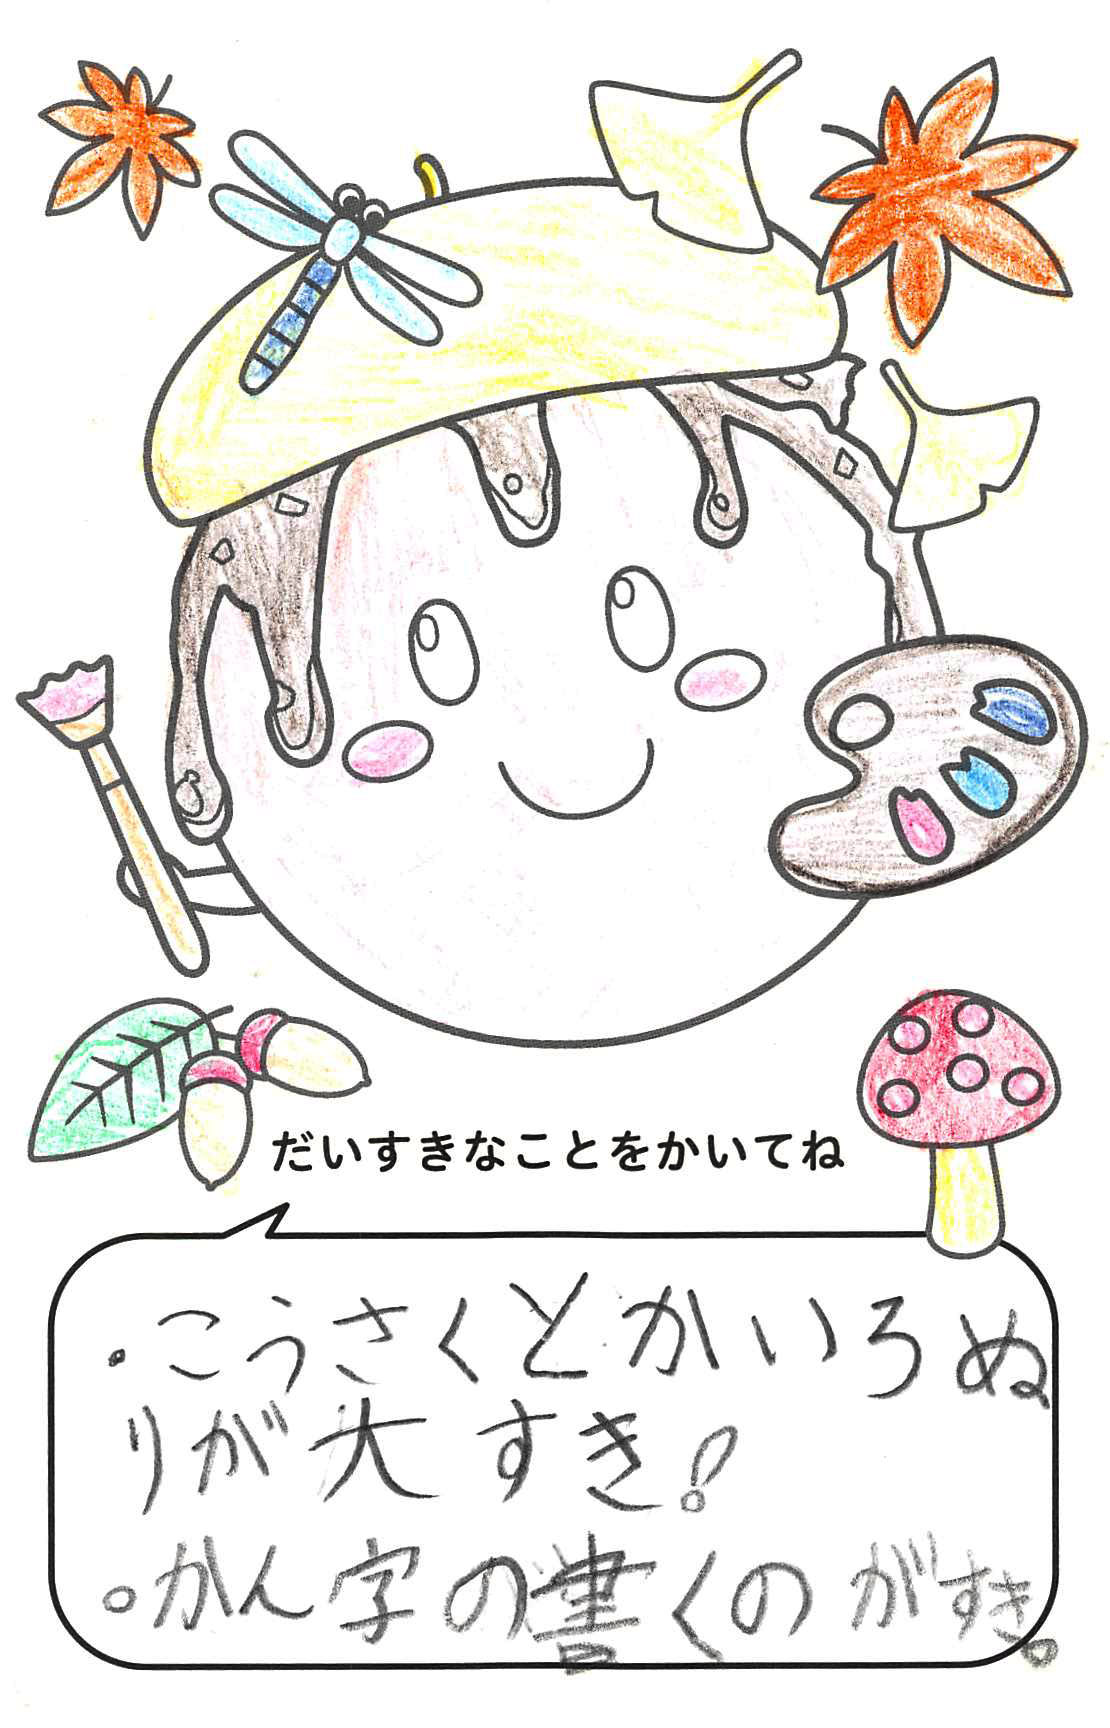 だいすきなことをかいてね
・こうさくとかいろぬ
りが大すき!
・かん字の書くのがすき。